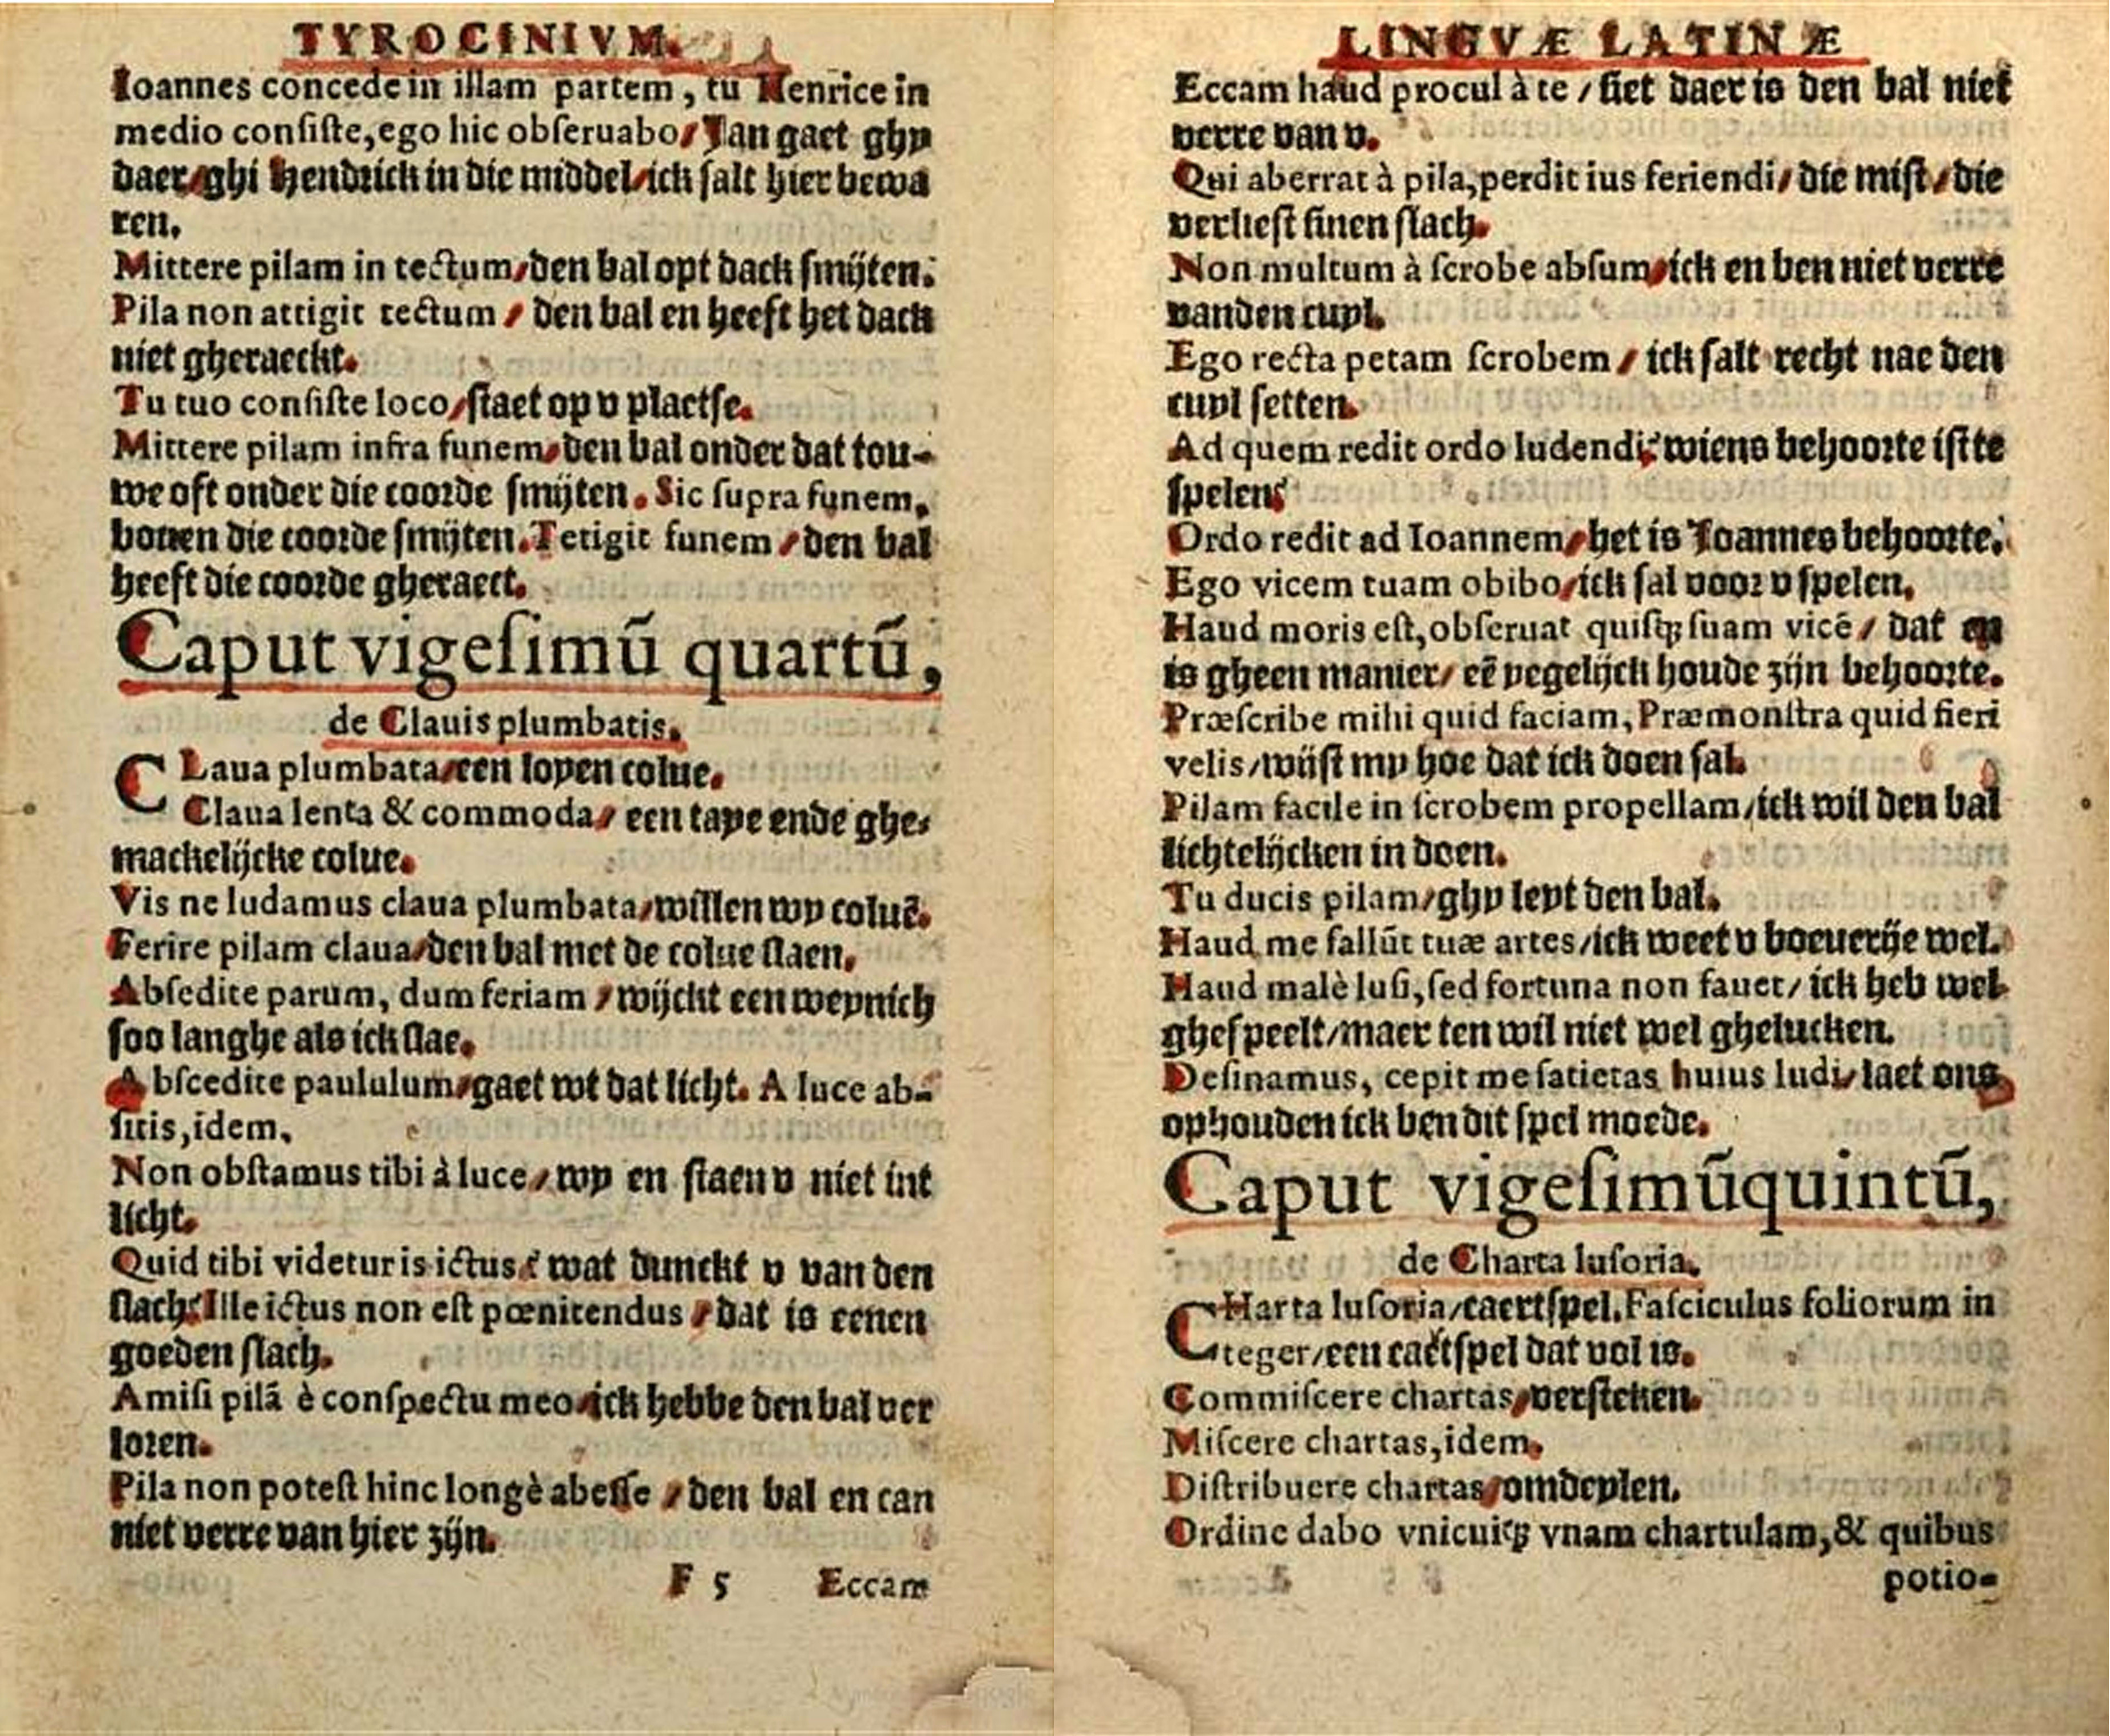 TYROCINIVM.
Ioannes concede in illam partem, tu Henrice in
medio consiſte, ego hic obſeruabo/ Jan gaet ghy
daer/ghi Hendrick in die middel/ick ſalt hier bewa
ren.
Mittere pilam in tectum/den bal opt dack ſmijten.
Pila non attigit tectum / den bal en heeft het dack
niet gheraeckt.
Tu tuo conſiſte loco/ſtaet op v plaetſe.
Mittere pilam infra funem/den bal onder dat tou-
we oft onder die coorde ſmijten. Sic ſupra funem,
bouen die coorde ſmijten. Tetigit funem / den bal
heeft die coorde gheraect.
Caput vigeſimū quartū,
de Clauis plumbatis.
CLaua plumbata/een loyen colue.
Claua lenta & commoda/ een taye ende ghe-
mackelijcke colue.
Vis ne ludamus claua plumbata/willen wy coluē.
Ferire pilam claua/den bal met de colue ſlaen.
Abſedite parum, dum feriam / wijckt een weynich
ſoo langhe als ick ſlae.
Abſcedite paululum/gaet wt dat licht. A luce ab-
ſitis, idem.
Non obſtamus tibi à luce/ wy en ſtaen v niet int
licht.
Quid tibi videtur is ictus? wat dunckt v van den
ſlach? Ille ictus non eſt pœnitendus / dat is eenen
goeden ſlach.
Amiſi pilā è conſpectu meo/ick hebbe den bal ver
loren.
Pila non poteſt hinc longè abeſſe / den bal en can
niet verre van hier zijn.
F 5 Eccam
LINGVÆ LATINÆ
Eccam haud procul à te / ſiet daer is den bal niet
verre van v.
Qui aberrat à pila, perdit ius feriendi/ die miſt/die
verlieſt ſinen ſlach.
Non multum à ſcrobe abſum/ick en ben niet verre
vanden cuyl.
Ego recta petam ſcrobem / ick ſalt recht nae den
cuyl ſetten.
Ad quem redit ordo ludendi? wiens behoorte iſt te
ſpelen?
Ordo redit ad Ioannem/het is Joannes behoorte.
Ego vicem tuam obibo/ick ſal voor v ſpelen.
Haud moris eſt, obſeruat quiſq; ſuam vicē/ dat en
is gheen manier/ eē yegelijck houde zijn behoorte.
Præſcribe mihi quid faciam, Præmonſtra quid fieri
velis/wijſt my hoe dat ick doen ſal.
Pilam facile in ſcrobem propellam/ick wil den bal
lichtelijcken in doen.
Tu ducis pilam/ghy leyt den bal.
Haud me fallūt tuæ artes/ick weet v boeuerije wel.
Haud malè luſi, ſed fortuna non fauet/ ick heb wel
gheſpeelt/maer ten wil niet wel ghelucken.
Deſinamus, cepit me ſatietas huius ludi/laet ons
ophouden ick ben dit ſpel moede.
Caput vigeſimūquintū,
de Charta luſoria.
CHarta luſoria/caertſpel. Faſciculus foliorum in
teger/een caetſpel dat vol is.
Commiſcere chartas/verſteken.
Miſcere chartas, idem.
Diſtribuere chartas/omdeylen.
Ordine dabo vnicuiq; vnam chartulam, & quibus
potio-